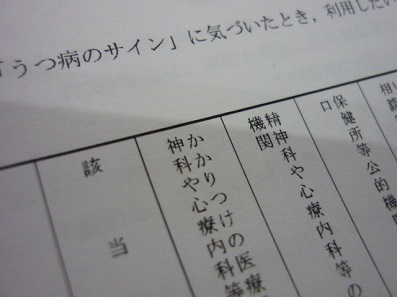 「うつ病のサイン」に気づいたとき、利用したい
該当
かかりつけの医療
神科や心療内科等
精神科や心療内科等の
機関
保健所等公的機関
口